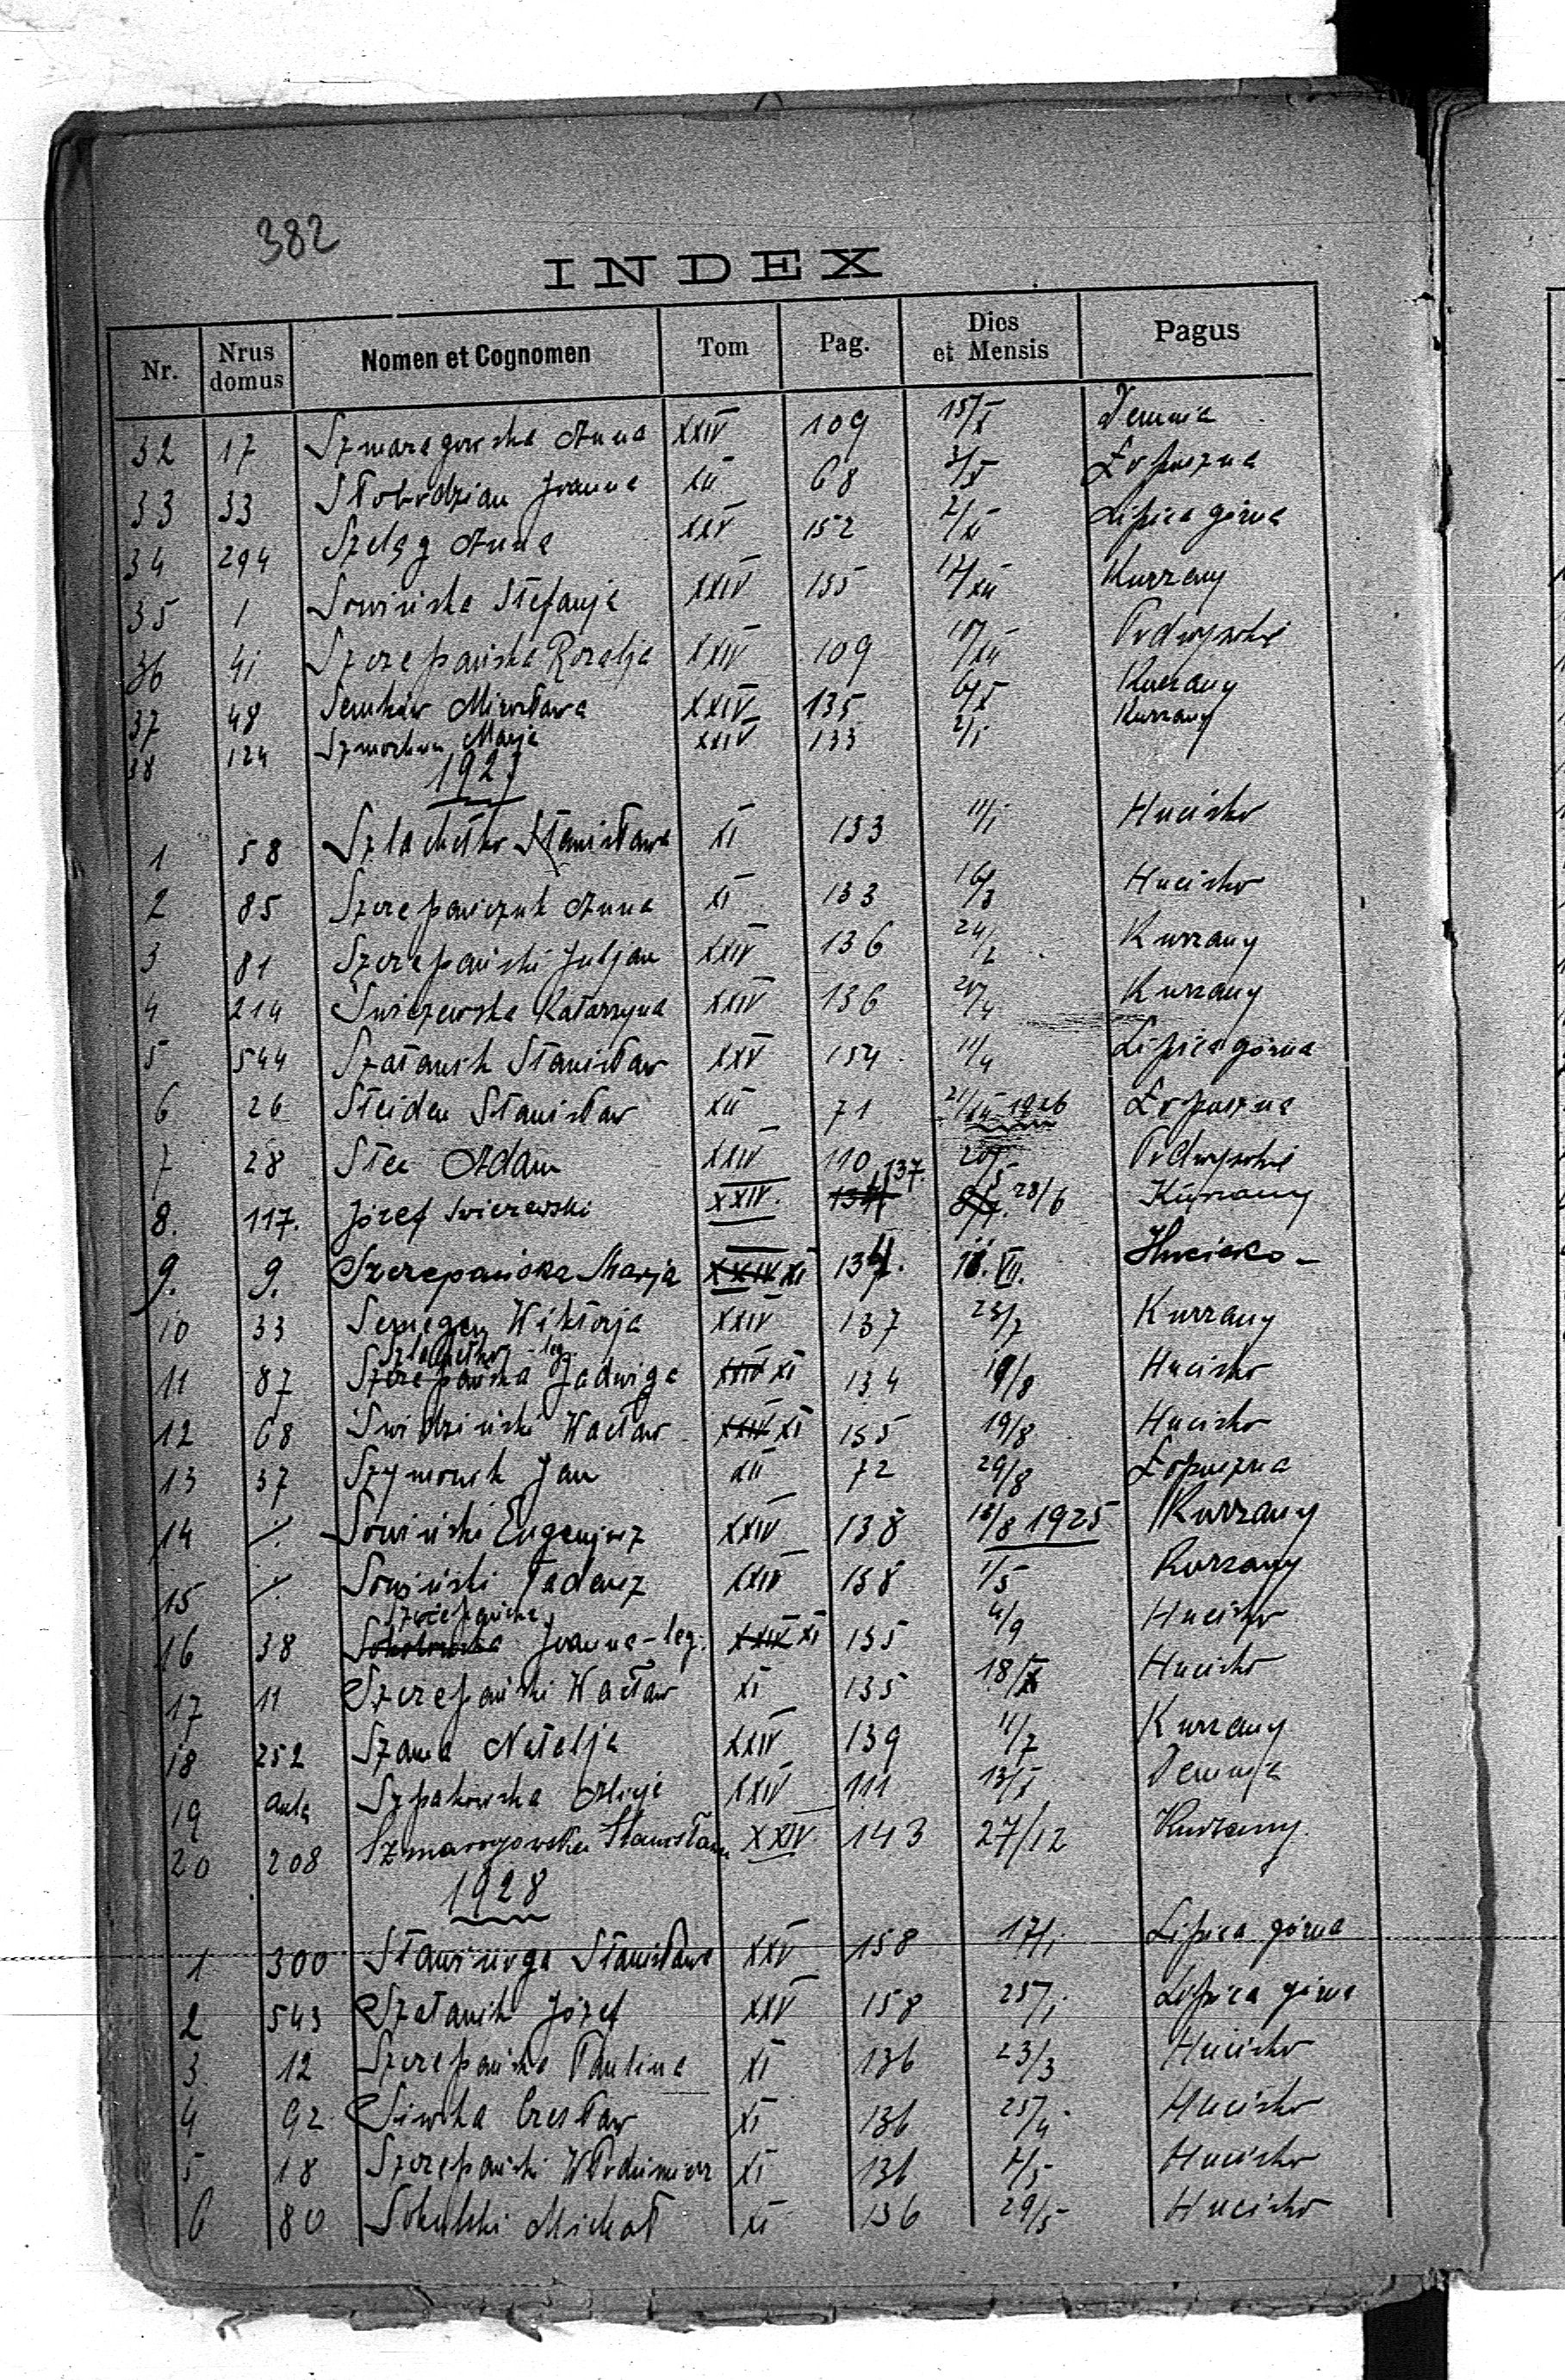 382
INDEX
Nr. Nrus domus Nomen et Cognomen Tom Pag. Dies et Mensis Pagus
32 17 Szmaragowska Anna XXIV 109 15/X Demnia
33 33 Słobodzian Joanna XII 68 3/X Łopuszna
34 294 Szeląg Anna XXV 152 2/XI Lipica górna
35 1 Sowińska Stefanja XXIV 135 12/XII Kurzany
36 41 Szczepańska Rozalja XXIV 109 10/XII Podwysokie
37 48 Semków Mirosława XXIV 135 6/X Kurzany
38 124 Marja XXIV 133 2/I Kurzany
1927
1 58 Szlachetko Stanisława XI 133 11/I Hucisko
2 85 Szczepańczuk Anna XI 133 16/3 Hucisko
3 81 Szczepański Juljan XXIV 136 24/2 Kurzany
4 214 Świczewska Katarzyna XXIV 136 Kurzany
5 544 Szatanik Stanisław XXV 154 11/4 Lipica górna
6 26 Steiden Stanisław XII 71 21/XII 1926 Łopuszna
7 28 Stec Adam XXIV 110 20/5 Podwysokie
8. 117. Józef Świczewski XXIV. 137. 28/6 Kurzany
9. 9. Szczepańska Marja XI 134. VII. Hucisko -
10 33 Semegen Wiktorja XXIV 137 23/7 Kurzany
11 87 Szczepańska Szlachetko - leg. Jadwiga XXIV XI 134 19/8 Hucisko
12 68 Świdziński Wacław XXIV XI 135 19/8 Hucisko
13 37 Szymonik Jan XII 72 29/8 Łopuszna
14 ./. Sowiński Eugenjusz XXIV 138 18/8 1925 Kurzany
15 ./. Sowiński Tadeusz XXIV 138 1/5 Kurzany
16 38 Sokołowska Szczepańska Joanna - leg. XXIV XI 135 4/9 Hucisko
17 11 Szczepański Wacław XI 135 18/IX Hucisko
18 252 Szama Natalja XXIV 139 11/7 Kurzany
19 aula Szpakowska Alicja XXIV 111 13/X Demnja
20 208 Szmaragowska Stanisława XXIV 143 27/12 Kurzany.
1928
1 300 Stanisława XXV 158 17/I Lipica górna
2 543 Szatanik Józef XXV 158 25/I Lipica górna
3 12 Szczepańska Paulina XI 136 23/3 Hucisko
4 92 Siwka Czesław XI 136 25/4 Hucisko
5 18 Szczepański Włodzimierz XI 136 Hucisko
6 80 Sokulski Michał XI 136 29/5 Hucisko